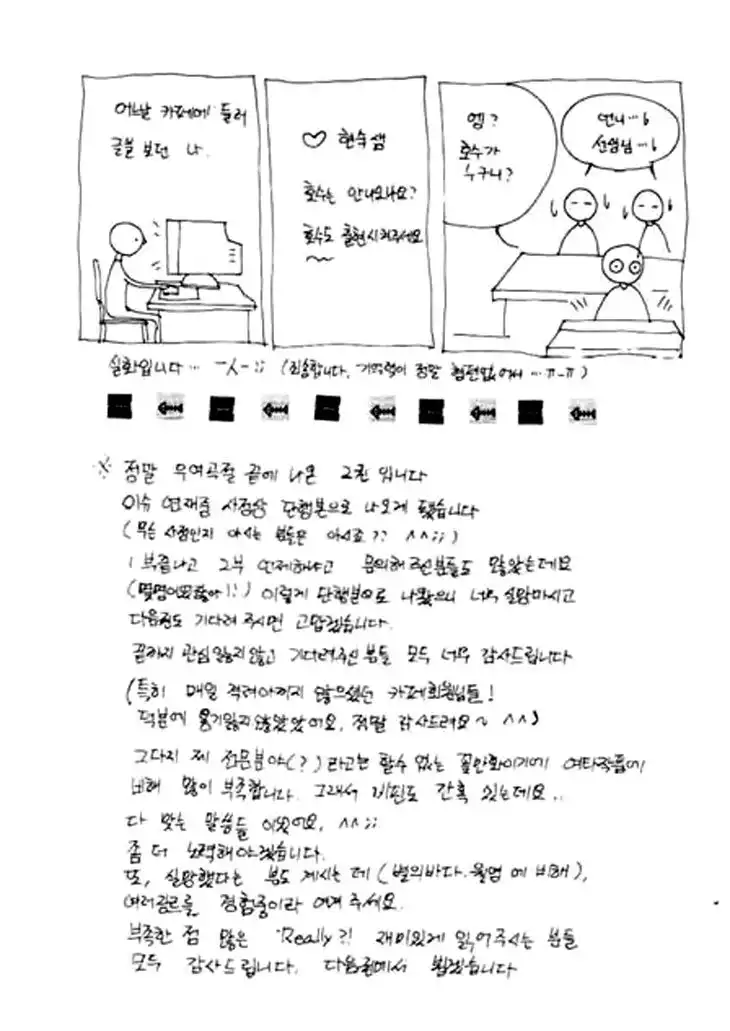 어느날 카페에 들러
글을 보던 나.
♡ 현수쌤
호수는 안나오나요?
호수도 출현시켜주세요
~~
엥?
호수가
누구니?
언니…
선영님…
실화입니다… ㅡㅅㅡ;; (죄송합니다. 기억력이 정말 형편없어서…ㅠ-ㅠ)
※ 정말 우여곡절 끝에 나온 2권 입니다
이슈 연재중 사정상 단행본으로 나오게 됐습니다
(무슨 사정인지 아시는 분들은 아시죠?? ^^;;)
1부끝나고 2부 언제하냐고 문의해 주신분들도 많았는데요
이렇게 단행본으로 나왔으니 너무 실망마시고
다음권도 기다려 주시면 고맙겠습니다.
끝까지 관심 잃지않고 기다려주신 분들 모두 너무 감사드립니다
(특히 매일 격려아끼지 않으셨던 카페회원님들!
덕분에 용기잃지않았었어요. 정말 감사드려요~ ^^)
그다지 제 전문분야(?)라고는 할수 없는 꽃만화이기에 여타작품에
비해 많이 부족합니다. 그래서 비판도 간혹 있는데요..
다 맞는 말씀들 이었어요. ^^;;
좀 더 노력해야겠습니다.
또, 실망했다는 분도 계시는 데 (별의바다.월영 에 비해),
여러장르를 경험중이라 여겨 주세요.
부족한 점 많은 'Really?! 재미있게 읽어주시는 분들
모두 감사드립니다. 다음권에서 뵙겠습니다